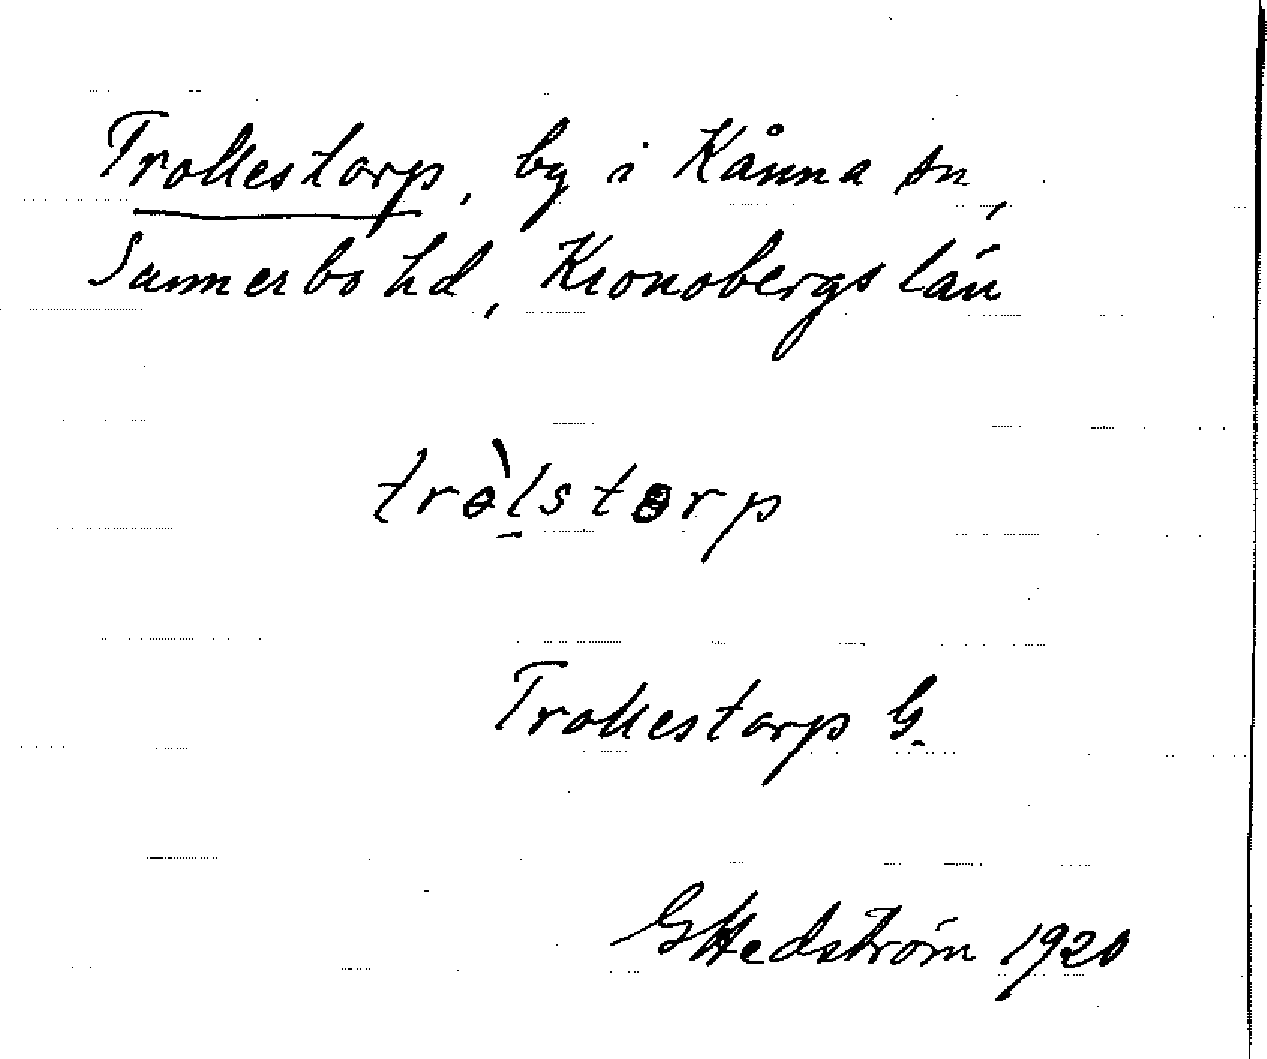 Trollestorp, by i Kånna sn,
Sunnerbo hd, Kronobergs län
tròlstɵrp
Trollestorp G.
G Hedström 1920